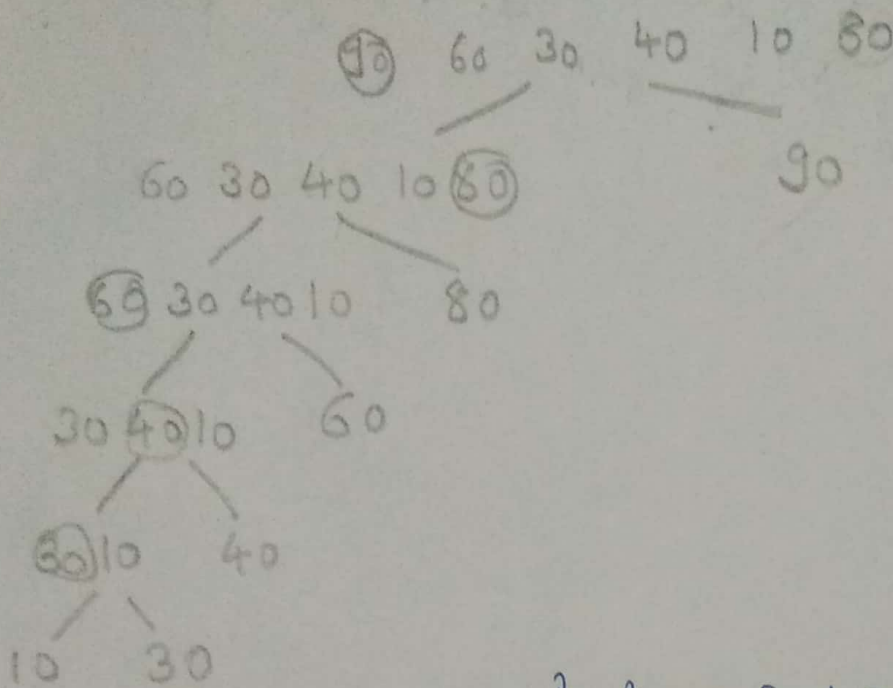 90 60 30 40 10 80
60 30 40 10 80 90
60 30 40 10 80
30 40 10 60
30 10 40
10 30